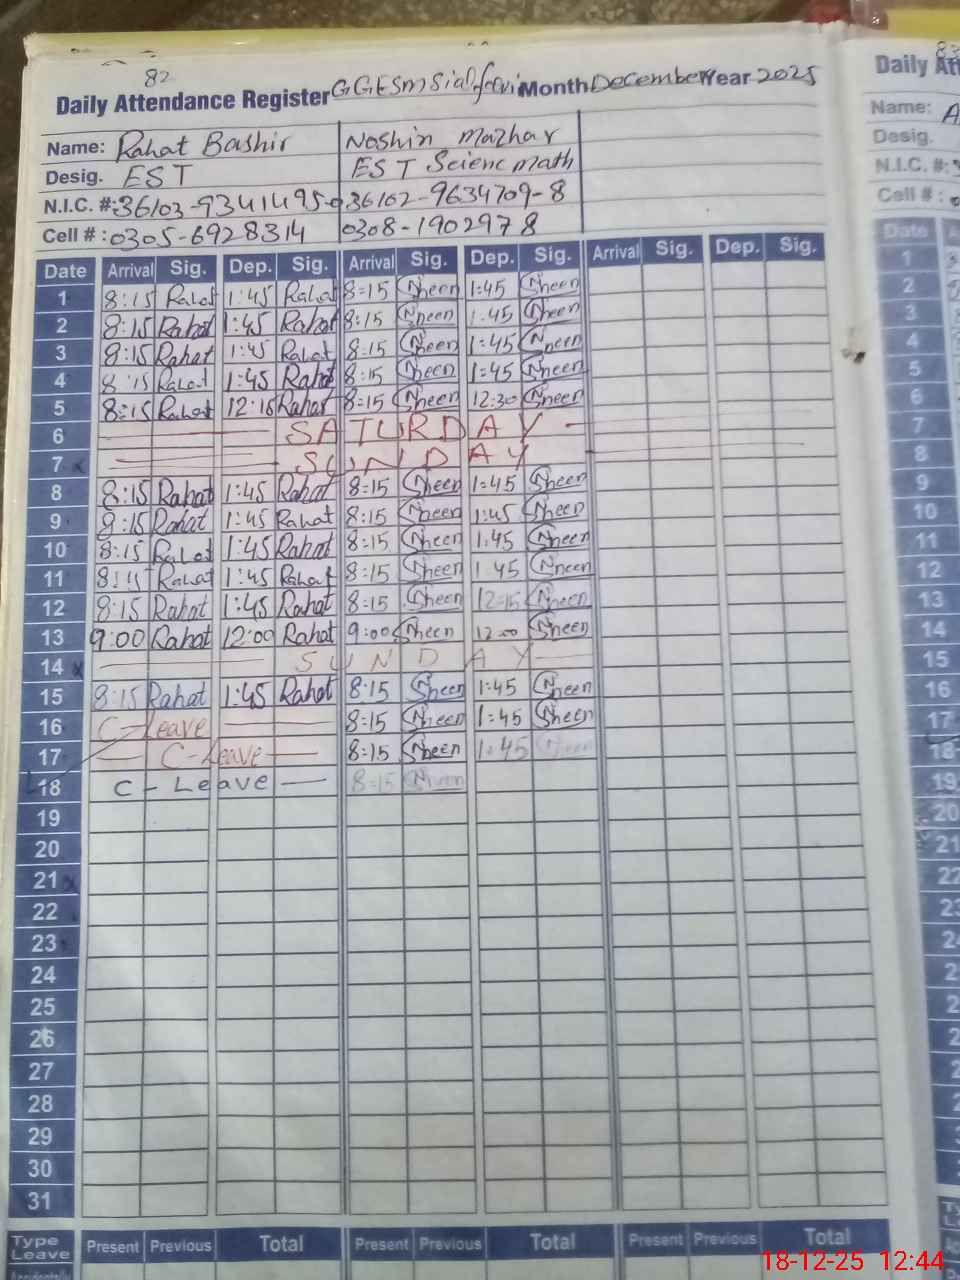 82
Daily Attendance Register GGESM Month December Year 2025
Name: Rahat Bashir Noshin Mazhar
Desig. EST EST Scienc math
N.I.C. #: 36102-9634709-8
Cell #: 0305-6928314 0308-1902978
Date Arrival Sig. Dep. Sig. Arrival Sig. Dep. Sig. Arrival Sig. Dep. Sig.
1 8:15 Rahat 1:45 Rahat 8:15 Nheen 1:45 Nheen
2 8:15 Rahat 1:45 Rahat 8:15 Nheen 1:45 Nheen
3 8:15 Rahat 1:45 Rahat 8:15 Nheen 1:45 Nheen
4 8:15 Rahat 1:45 Rahat 8:15 Nheen 1:45 Nheen
5 8:15 Rahat Rahat 8:15 Nheen 12:30 Nheen
6 SATURDAY
7 SUNDAY
8 8:15 Rahat 1:45 Rahat 8:15 Nheen 1:45 Nheen
9 8:15 Rahat 1:45 Rahat 8:15 Nheen 1:45 Nheen
10 8:15 Rahat 1:45 Rahat 8:15 Nheen 1:45 Nheen
11 8:15 Rahat 1:45 Rahat 8:15 Nheen 1:45 Nheen
12 8:15 Rahat 1:45 Rahat 8:15 Nheen 12:15 Nheen
13 9:00 Rahat 12:00 Rahat 9:00 Nheen 12:00 Nheen
14 SUNDAY
15 8:15 Rahat 1:45 Rahat 8:15 Nheen 1:45 Nheen
16 C-Leave 8:15 Nheen 1:45 Nheen
17 C-Leave 8:15 Nheen 1:45 Nheen
18 C-Leave 8:15 Nheen
19
20
21
22
23
24
25
26
27
28
29
30
31
Type Leave Present Previous Total Present Previous Total Present Previous Total
Daily
Name: A
Desig.
N.I.C. #:
Cell #:
Date
1
2
3
4
5
6
7
8
9
10
11
12
13
14
15
16
17
18
19
20
21
22
18-12-25 12:44